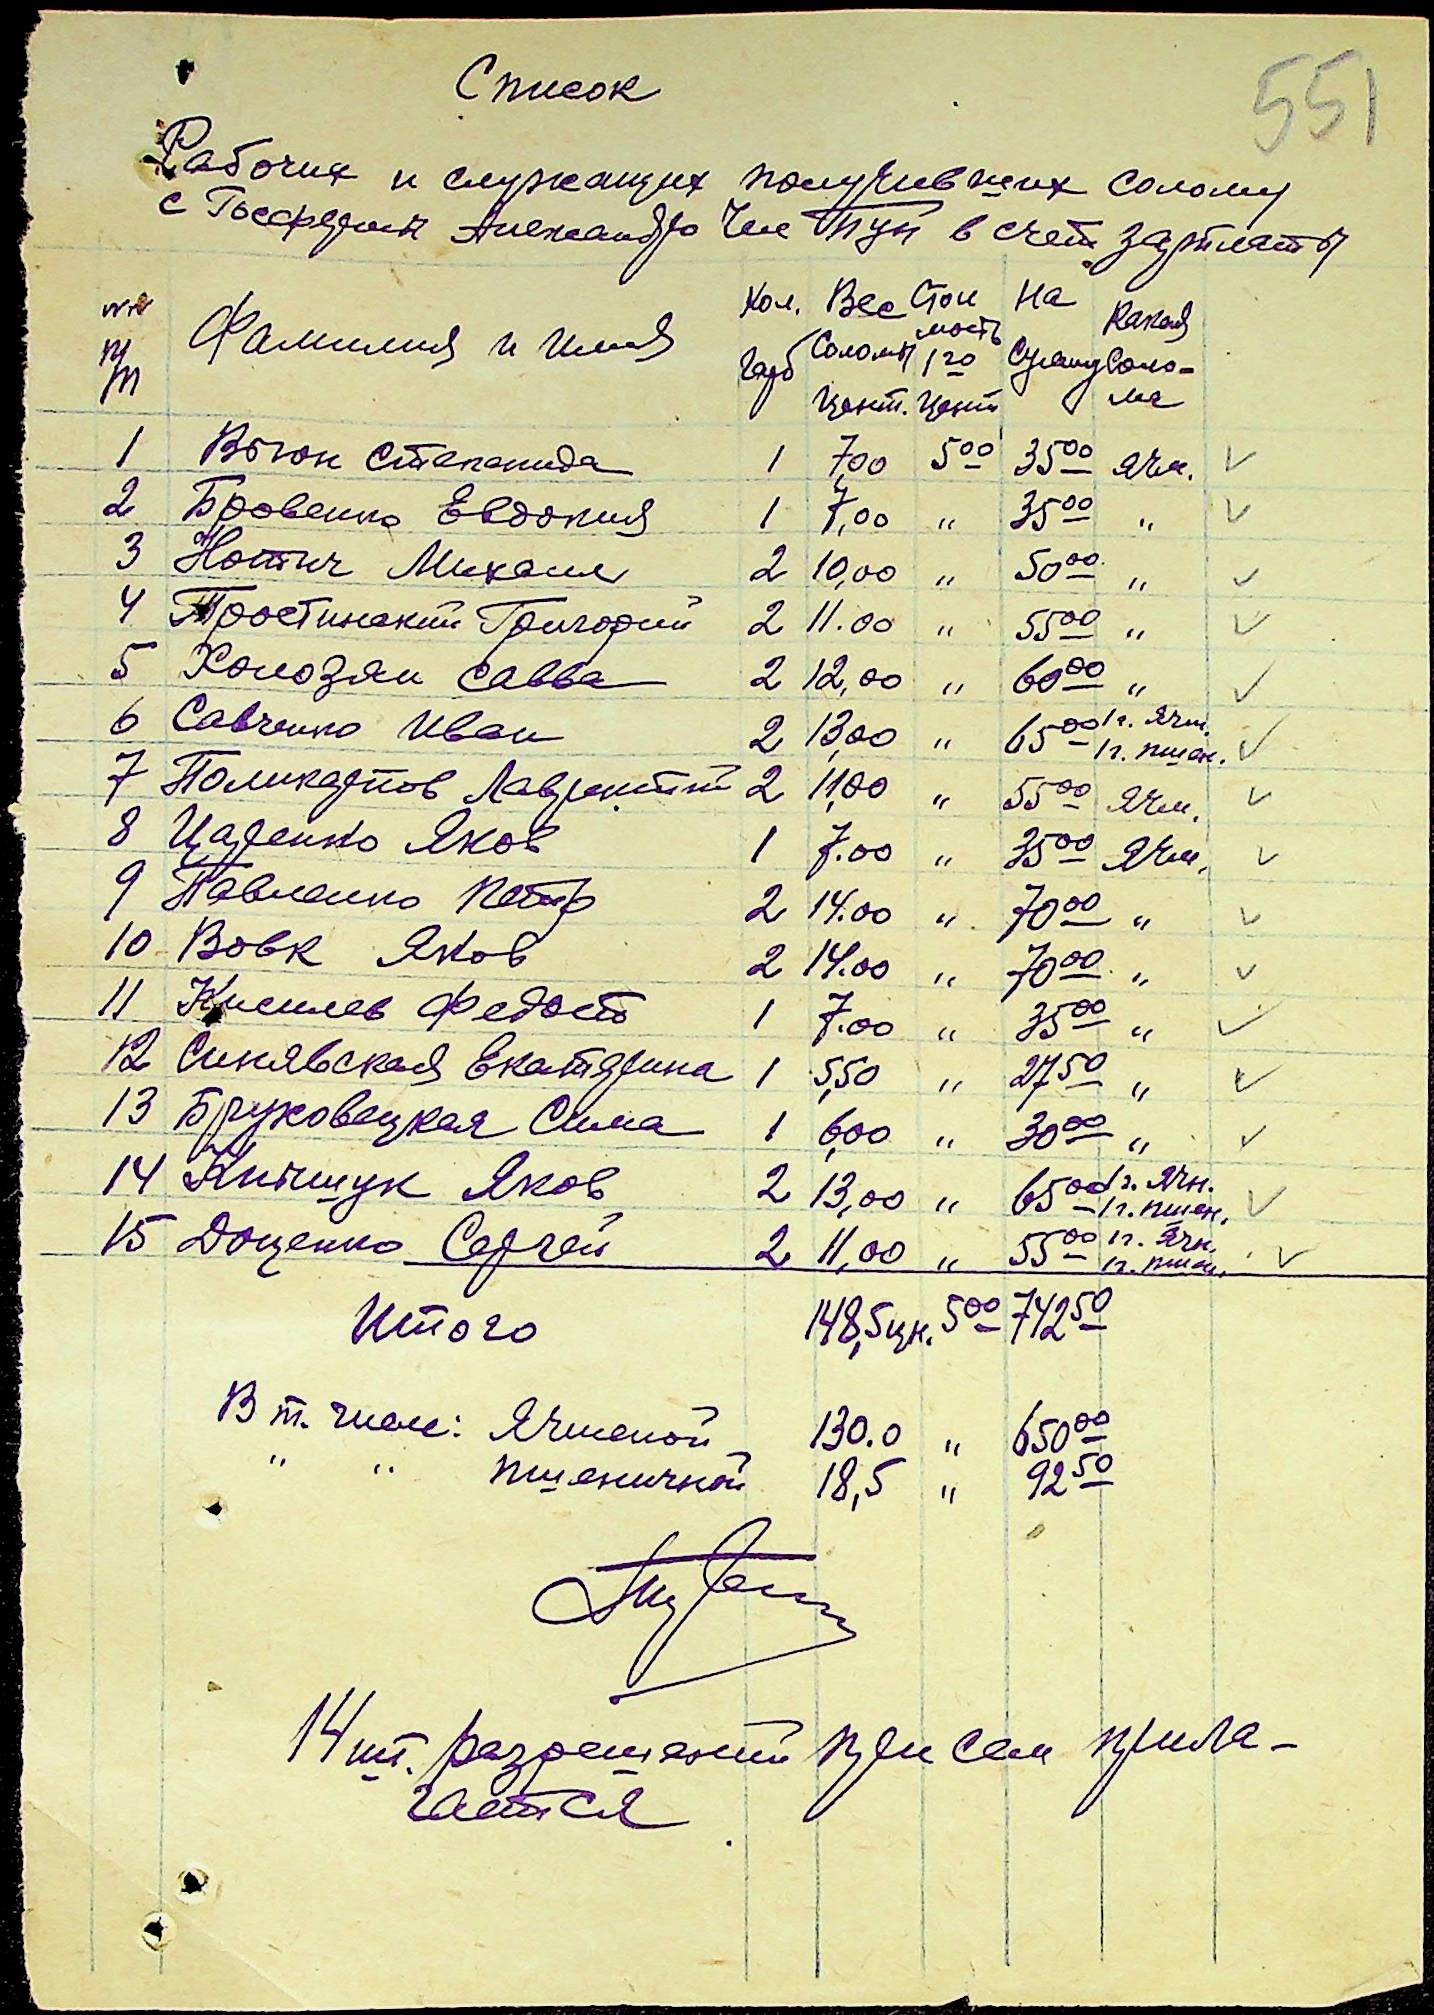 551
Список
Рабочих и служащих получивших солому
с Госфермы в счет зарплаты
№№ п/п Фамилия и имя Кол. гарб Вес соломы цент. Стоимость 1го цент На сумму Какая солома
1 Степанида 1 7,00 5 00 35 00 ячм. ✓
2 Бровенко Евдокия 1 7,00 " 35 00 " ✓
3 Михаил 2 10,00 " 50 00 " ✓
4 Тростинский Григорий 2 11.00 " 55 00 " ✓
5 Савва 2 12,00 " 60 00 " ✓
6 Савченко Иван 2 13,00 " 65 00 1 г. ячм. 1 г. пшен. ✓
7 Поликарпов Лаврентий 2 11,00 " 55 00 ячм. ✓
8 Царенко Яков 1 7.00 " 35 00 ячм. ✓
9 Павленко Петр 2 14.00 " 70 00 " ✓
10 Вовк Яков 2 14.00 " 70 00 " ✓
11 Киселев Федот 1 7.00 " 35 00 " ✓
12 Синявская Екатерина 1 5,50 " 27 50 " ✓
13 Бруховецкая Сима 1 6,00 " 30 00 " ✓
14 Яков 2 13,00 " 65 00 1 г. ячн. 1 г. пшен. ✓
15 Доценко Сергей 2 11,00 " 55 00 1 г. ячн. 1 г. пшен. ✓
Итого 148,5 цн. 5 00 742 50
В т. числе: Ячменой 130.0 " 650 00
" " пшеничной 18,5 " 92 50
14 шт. разрешений при сем прила-
гается